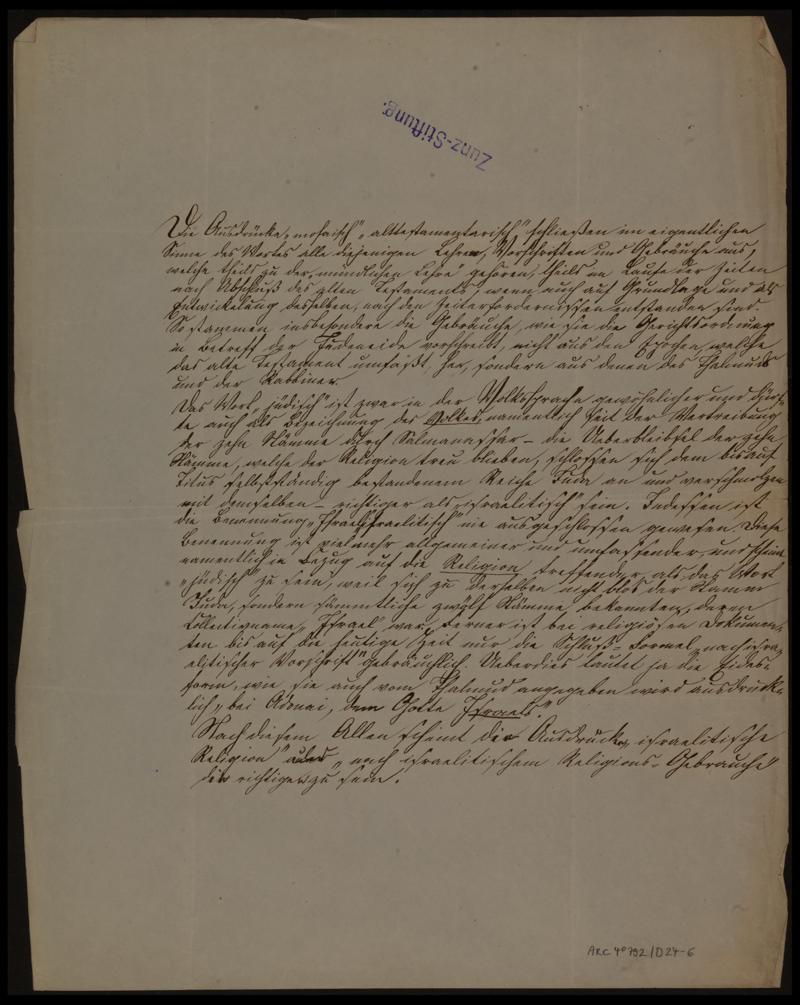 Zunz-Stiftung.
Die Ausdrücke „mosaisch“ „alttestamentarisch“, schließen im eigentlichen
Sinne des Wortes alle diejenigen Lehren, Vorschriften und Gebräuche aus,
welche theils zu der „mündlichen Lehre“ gehören, theils im Laufe der Zeiten
nach Abschluß des alten Testaments, wenn auch auf Grundlage und als
Entwickelung desselben, nach den Zeiterfordernissen entstanden sind.
So stammen insbesondere die Gebräuche, wie sie die Gerichtsordnung
in Betreff der Judeneide vorschreibt, nicht aus den Epochen, welche
das alte Testament umfaßt, her, sondern aus denen des Thalmuds
und der Rabbinen.
Das Wort „jüdisch“ ist zwar in der Volkssprache gewöhnlicher und dürf-
te auch als Bezeichnung des Volkes, namentlich seit der Vertreibung
der zehn Stämme durch Salmanassar – die Ueberbleibsel der zehn
Stämme, welche der Religion treu blieben, schlossen sich dem bis auf
Titus selbstständig bestandenem Reiche Juda an und verschmolzen
mit demselben – richtiger als „israelitisch“ sein. Indessen ist
die Benennung „Israel, Israelitisch“ nie ausgeschlossen gewesen. Diese
Benennung ist vielmehr allgemeiner und umfassender, und scheint
namentlich in Bezug auf die Religion treffender, als das Wort
„jüdisch“ zu sein, weil sich zu derselben nicht blos der Stamm
Juda, sondern sämmtliche zwölf Stämme bekannten, deren
Collectivname „Israel“ war. Ferner ist bei religiösen Dokumen-
ten bis auf die heutige Zeit nur die Schluß-Formel „nach isra-
elitischer Vorschrift“ gebräuchlich. Ueberdies lautet ja die Eides-
form, wie sie auch vom Thalmud angegeben wird ausdrück-
lich „bei Adonai, dem Gotte Israels.“
Nach diesem Allen scheint der Ausdruck „israelitische
Religion“ oder „nach israelitischem Religions-Gebrauche“
der richtige zu sein.
ARC 4° 792/D24-6